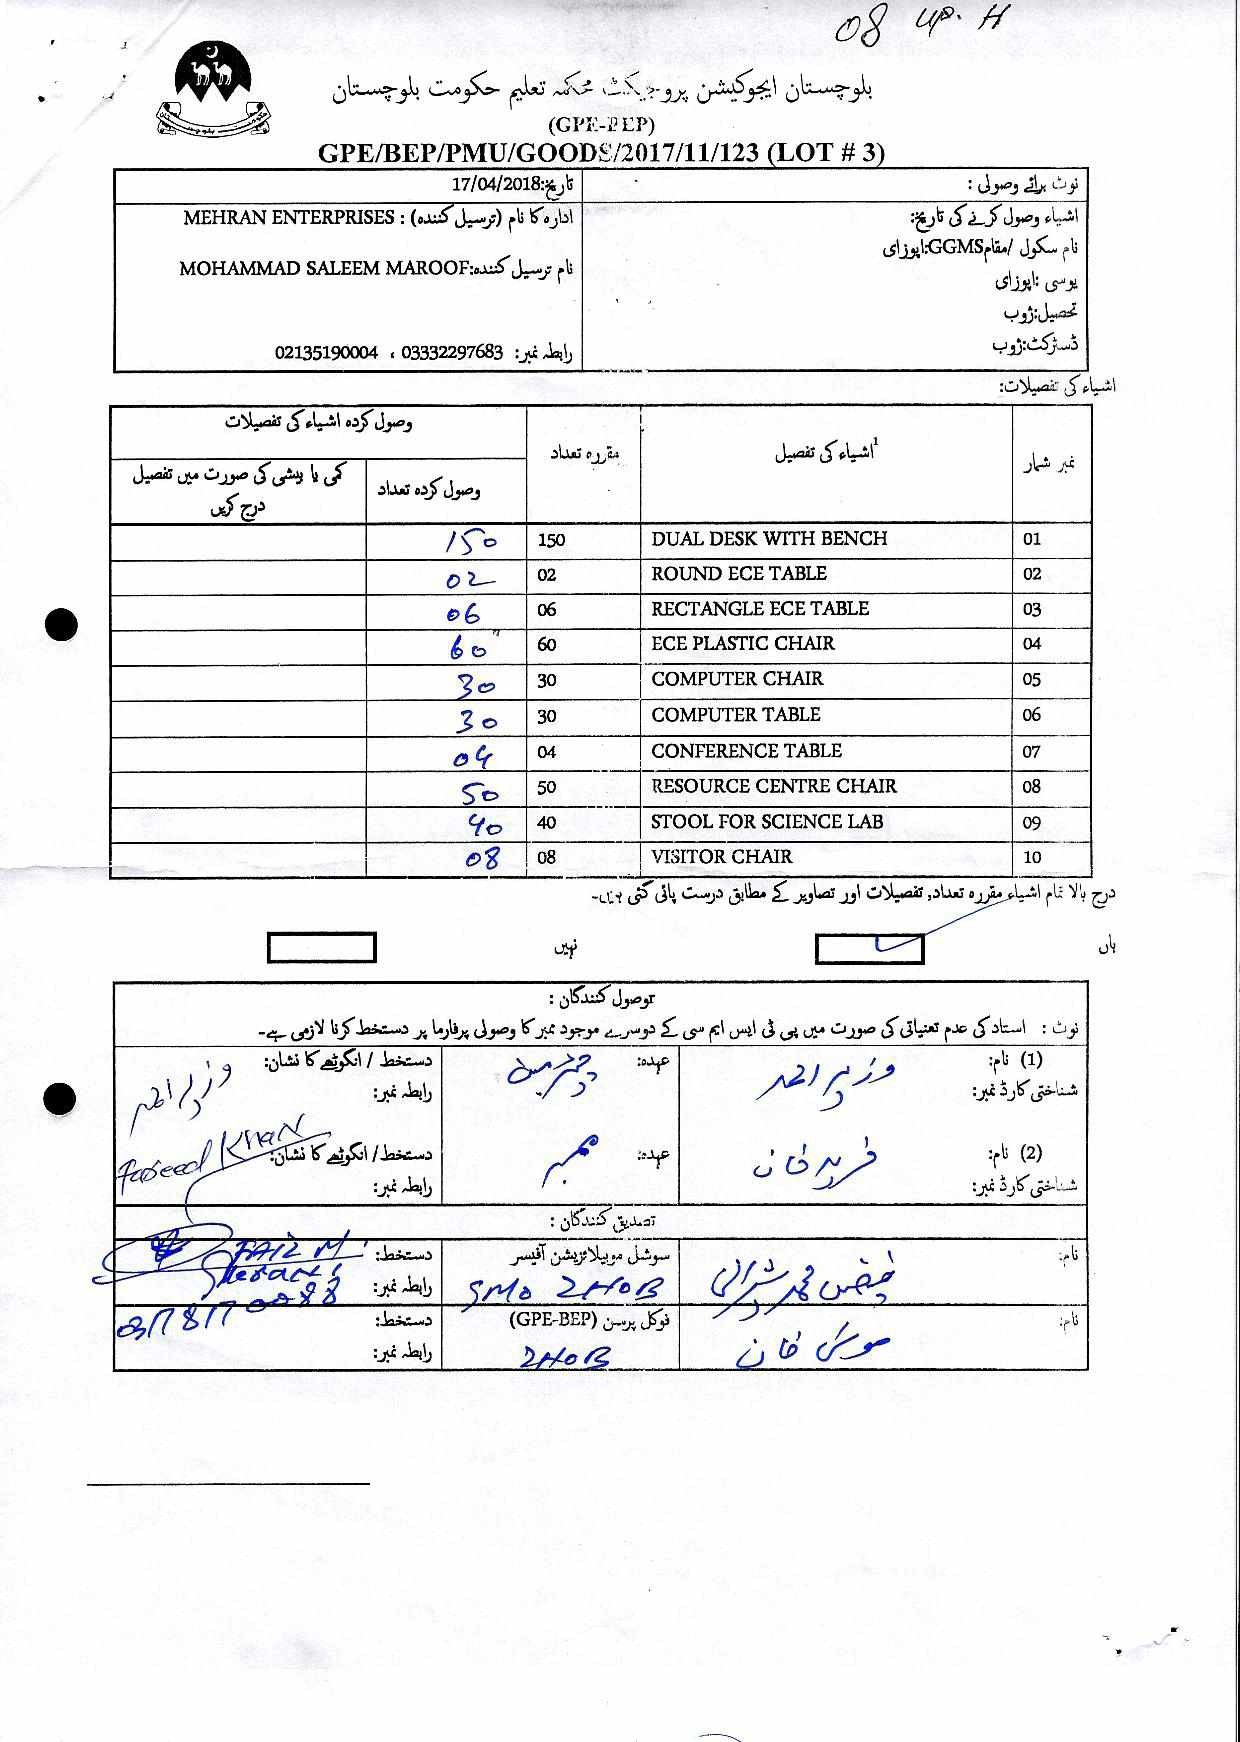 08 up. H
بلوچستان ایجوکیشن پروجیکٹ محکمہ تعلیم حکومت بلوچستان
(GPE-BEP)
GPE/BEP/PMU/GOODS/2017/11/123 (LOT # 3)
نوٹ برائے وصولی :
تاریخ:17/04/2018
اشیاء وصول کرنے کی تاریخ:
نام سکول /مقامGGMS:اپوزای
یوسی :اپوزای
تحصیل:ژوب
ڈسٹرکٹ:ژوب
ادارہ کا نام (ترسیل کنندہ) : MEHRAN ENTERPRISES
نام ترسیل کنندہ:MOHAMMAD SALEEM MAROOF
رابطہ نمبر: 03332297683 ، 02135190004
اشیاء کی تفصیلات:
نمبر شمار اشیاء کی تفصیل1 مقررہ تعداد وصول کردہ اشیاء کی تفصیلات
وصول کردہ تعداد کمی یا بیشی کی صورت میں تفصیل درج کریں
01 DUAL DESK WITH BENCH 150 150
02 ROUND ECE TABLE 02 02
03 RECTANGLE ECE TABLE 06 06
04 ECE PLASTIC CHAIR 60 60
05 COMPUTER CHAIR 30 30
06 COMPUTER TABLE 30 30
07 CONFERENCE TABLE 04 04
08 RESOURCE CENTRE CHAIR 50 50
09 STOOL FOR SCIENCE LAB 40 40
10 VISITOR CHAIR 08 08
درج بالا تمام اشیاء مقررہ تعداد, تفصیلات اور تصاویر کے مطابق درست پائی گئی ہیں۔
ہاں نہیں
توصول کنندگان :
نوٹ : استاد کی عدم تعیناتی کی صورت میں پی ٹی ایس ایم سی کے دوسرے موجود ممبر کا وصولی پرفارما پر دستخط کرنا لازمی ہے۔
(1) نام: وزیر احمد عہدہ: چیئرمین دستخط / انگوٹھے کا نشان: وزیر احمد
شناختی کارڈ نمبر: رابطہ نمبر:
(2) نام: فرید خان عہدہ: ممبر دستخط/ انگوٹھے کا نشان: Fareed Khan
شناختی کارڈ نمبر: رابطہ نمبر:
تصدیق کنندگان :
نام: فیض محمد شیرانی سوشل موبیلائزیشن آفیسر SMO ZHOB دستخط: FAIZ M. Sherani
رابطہ نمبر: 03178170088
نام: موسیٰ خان فوکل پرسن (GPE-BEP) ZHOB دستخط:
رابطہ نمبر: